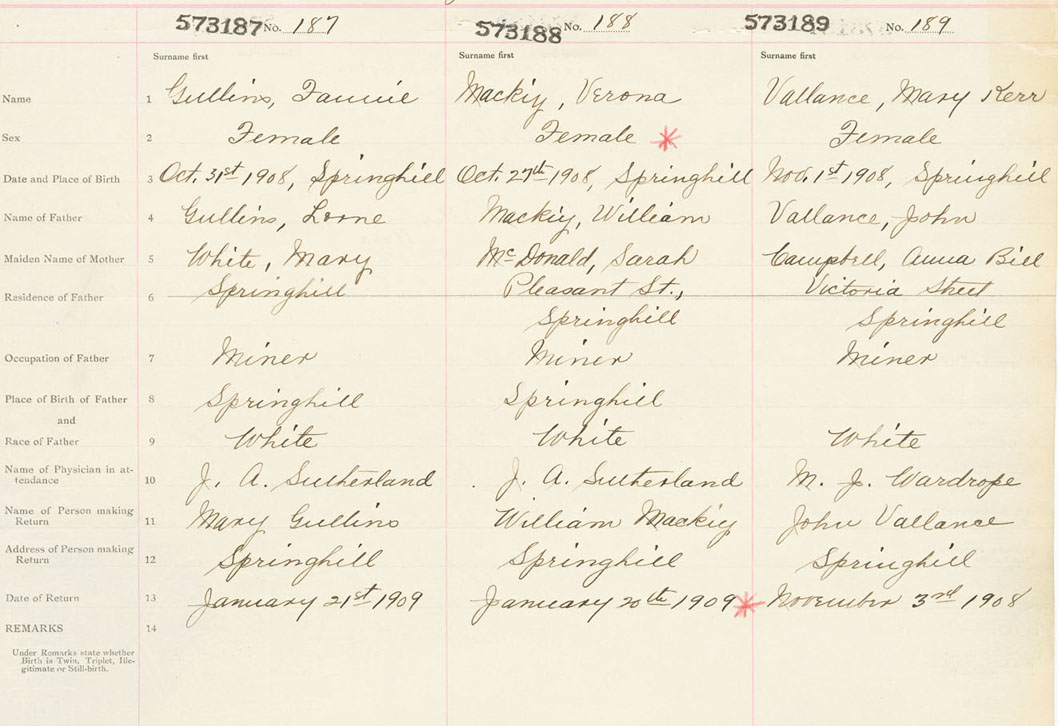 573187 No. 187 573188 No. 188 573189 No. 189
Surname first Surname first Surname first
Name 1 Gullins, Fannie Mackiy, Verona Vallance, Mary Kerr
Sex 2 Female Female * Female
Date and Place of Birth 3 Oct. 31st 1908, Springhill Oct 27th 1908, Springhill Nov. 1st 1908, Springhill
Name of Father 4 Gullins, Mackiy, William Vallance, John
Maiden Name of Mother 5 White, Mary McDonald, Sarah Campbell, Anna Bell
Residence of Father 6 Springhill Pleasant St., Victoria Street
Springhill Springhill
Occupation of Father 7 Miner Miner Miner
Place of Birth of Father 8 Springhill Springhill
and
Race of Father 9 White White White
Name of Physician in at-
tendance 10 J. A. Sutherland J. A. Sutherland M. J. Wardrope
Name of Person making
Return 11 Mary Gullins William Mackiy John Vallance
Address of Person making
Return 12 Springhill Springhill Springhill
Date of Return 13 January 21st 1909 January 20th 1909 * November 3rd 1908
REMARKS 14
Under Remarks state whether
Birth is Twin, Triplet, Ille-
gitimate or Still-birth.